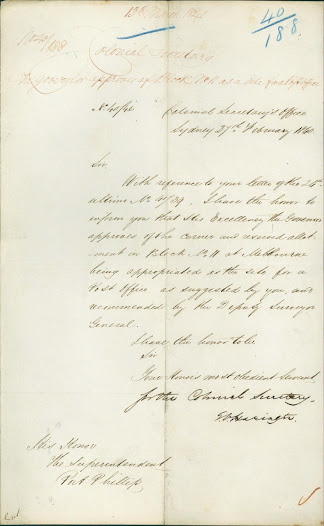 40
188
Colonial Secretary
The Governor approves of Block No 11 as a site for Post Office
No 40/
Colonial Secretary's Office
Sydney 27th February 1840
Sir
With reference to your letter of the 25th
ultimo No 40/39 I have the honor to
inform you that His Excellency the Governor
approves of the corner and second allot-
ment in Block No 11 at Melbourne
being appropriated as the site for a
Post Office as suggested by you, and
recommended by the Deputy Surveyor
General.
I have the honor to be
Sir
Your Honor's most obedient Servant
for the Colonial Secretary
His Honor
The Superintendent
Port Phillip